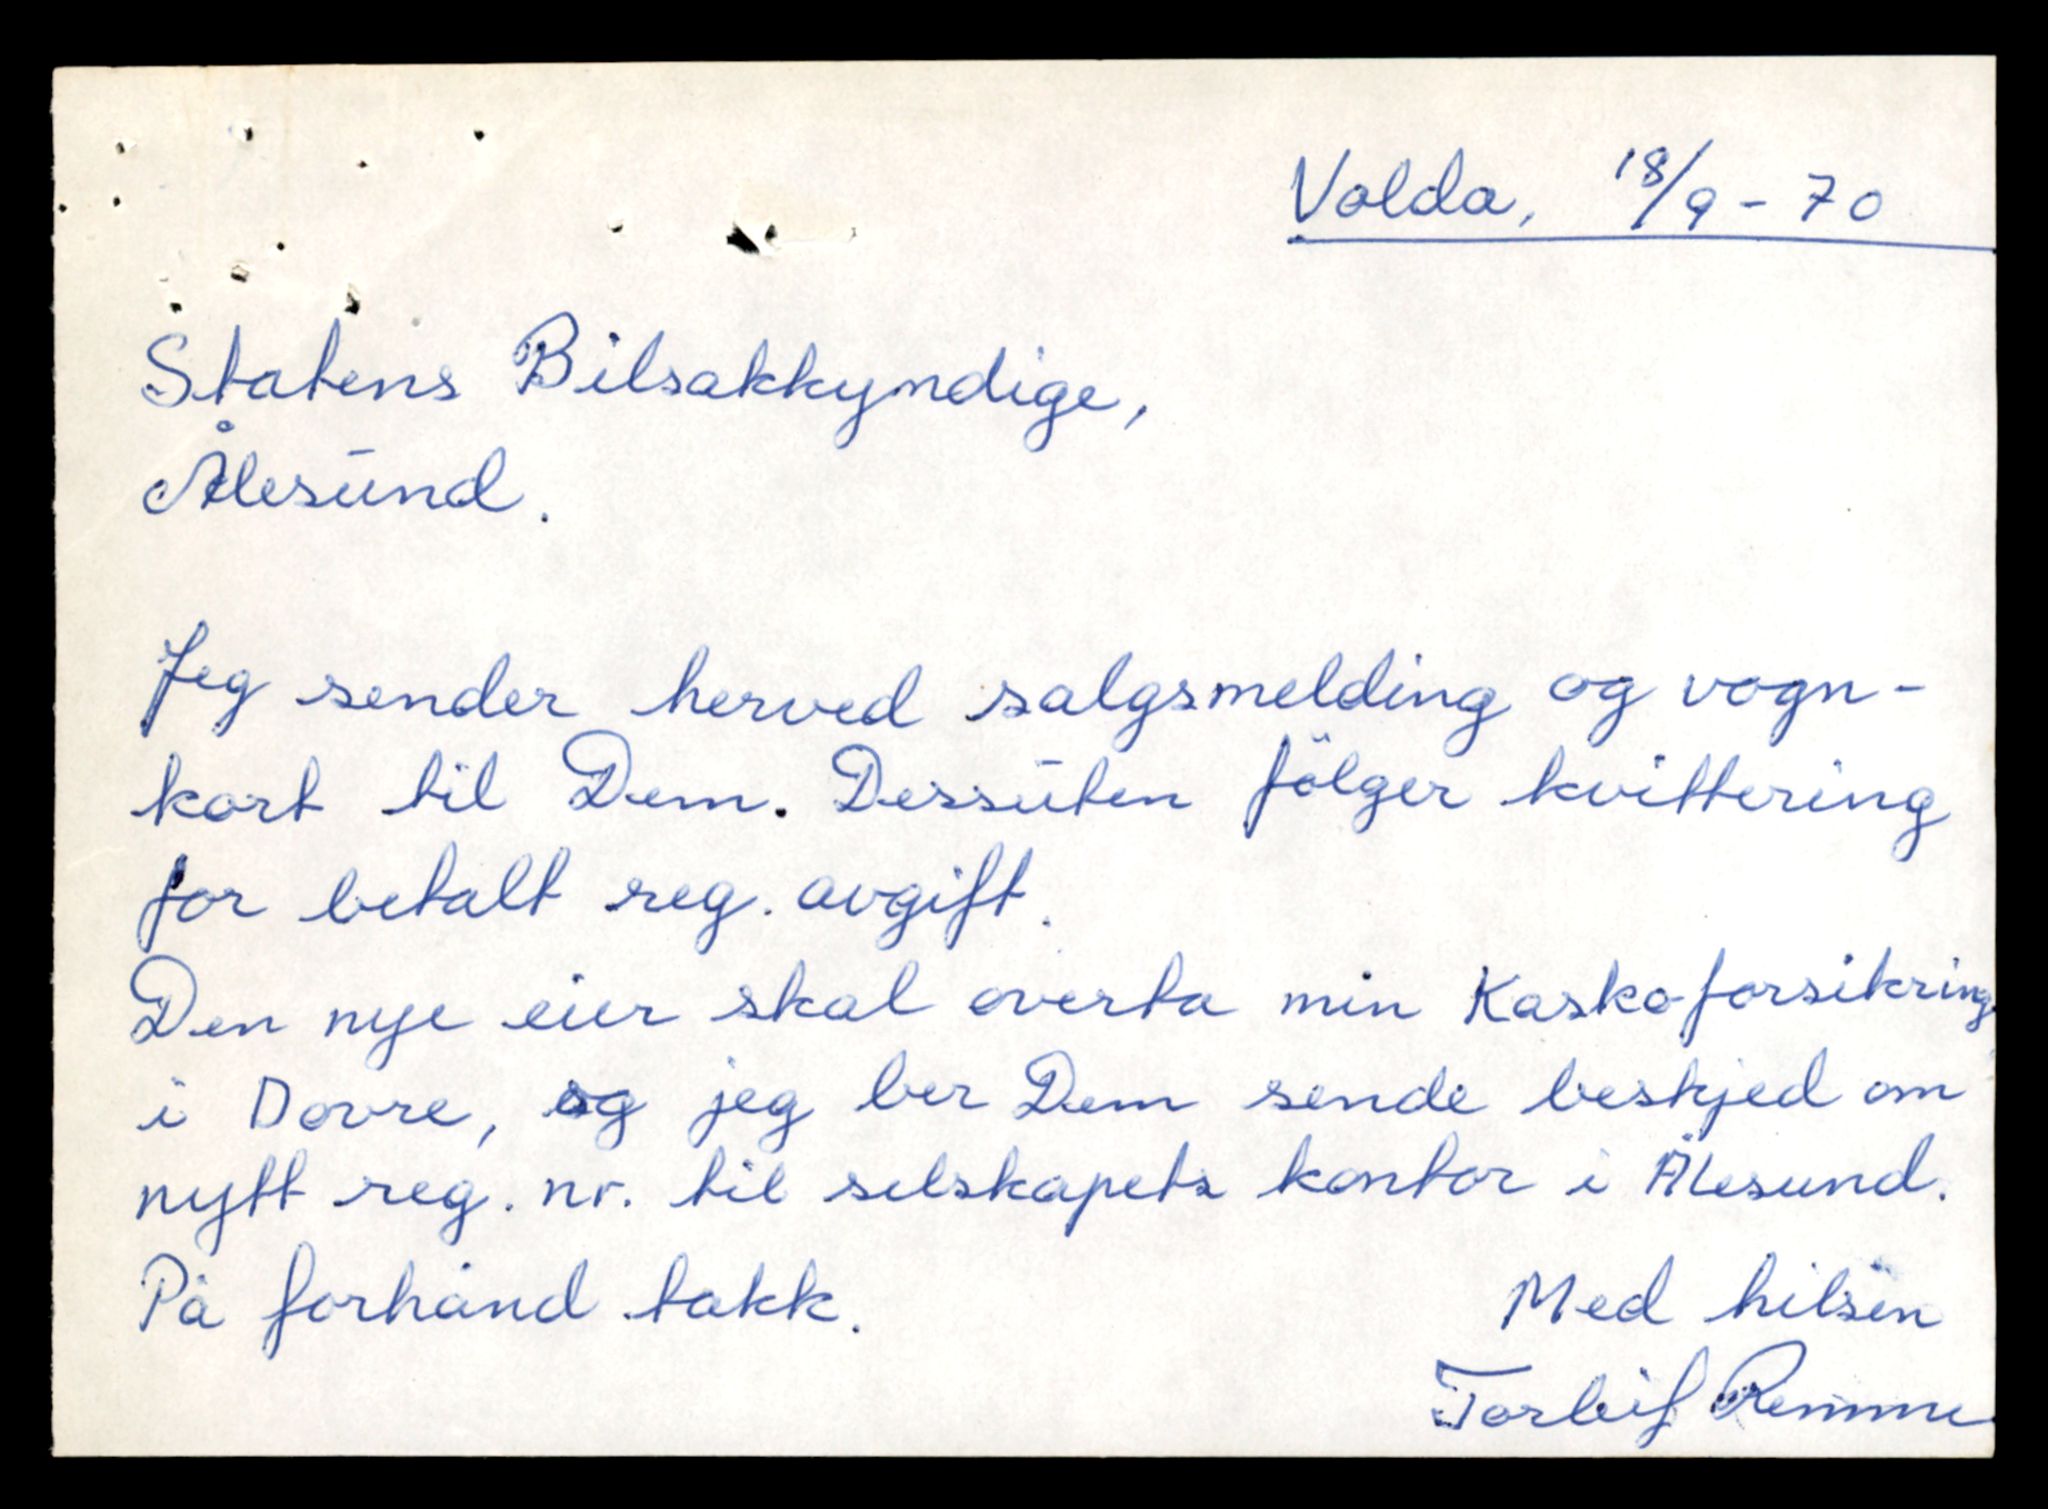 Volda, 18/9-70
Statens Bilsakkyndige,
Ålesund.
Jeg sender herved salgsmelding og vogn-
kort til Dem. Dessuten fölger kvittering
for betalt reg. avgift.
Den nye eier skal overta min Kasko-forsikring
i Dovre, og jeg ber Dem sende beskjed om
nytt reg. nr. til selskapets kontor i Ålesund.
På forhånd takk.
Med hilsen
Torleif Remme